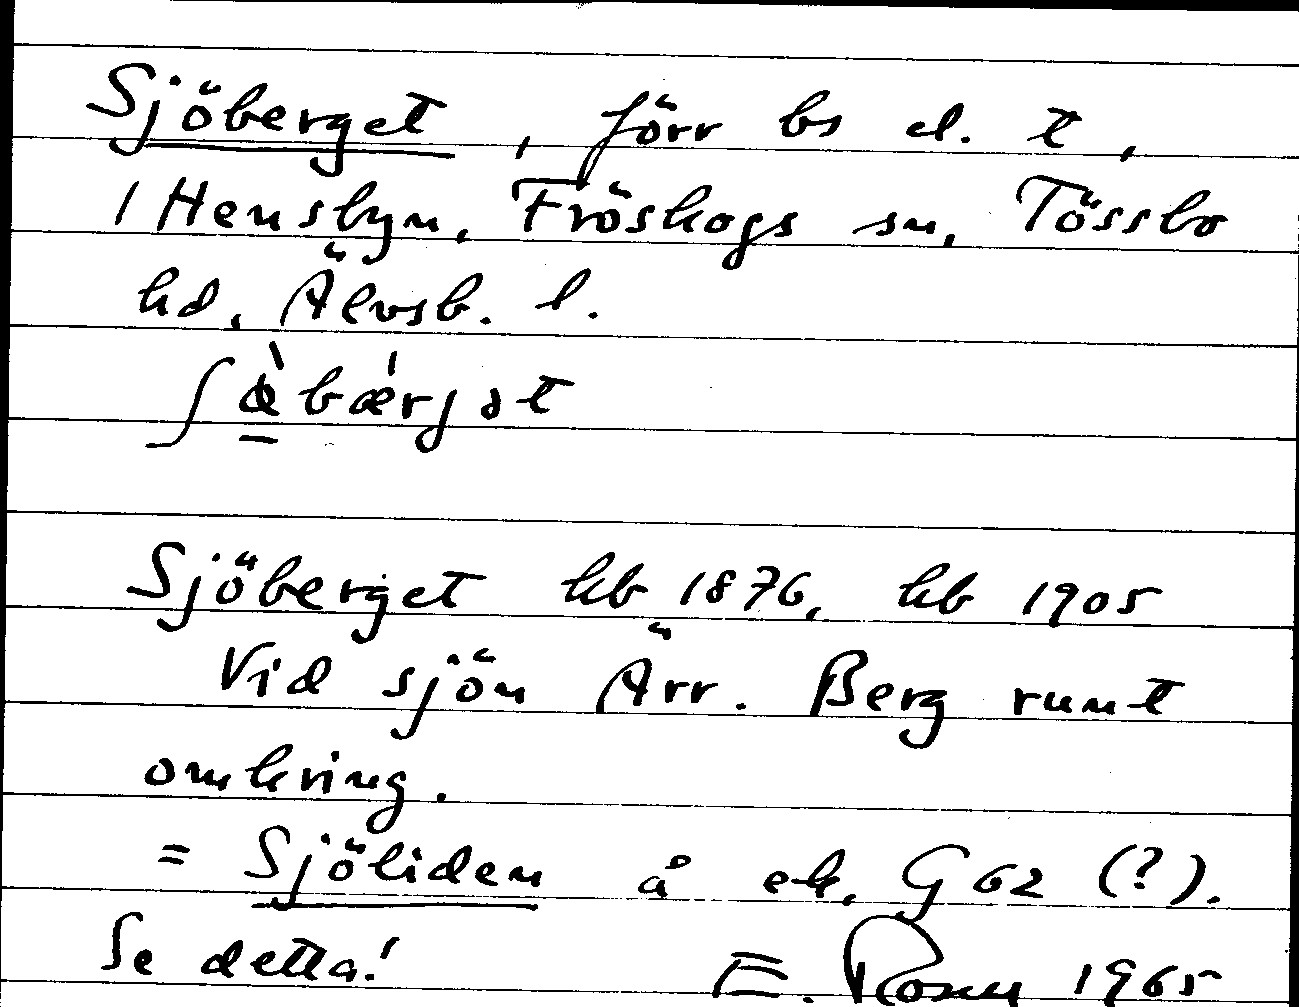 Sjöberget, förr bs el. t,
i Hensbyn, Fröskogs sn, Tössbo
hd, Älvsb. l.
bs 
Sjöberget hb 1876, hb 1905
Vid sjön Ärr. Berg runt
omkring.
= Sjöliden å ek. G 62 (?).
Se detta! E. Rosén 1965